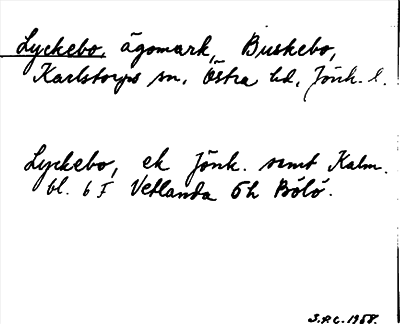 Lyckebo, ägomark, Buskebo,
Karlstorps sn, Östra hd, Jönk. l.
Lyckebo, ek Jönk. samt Kalm.
bl. 6 F Vetlanda 6h Bölö.
S.P.C. 1958.